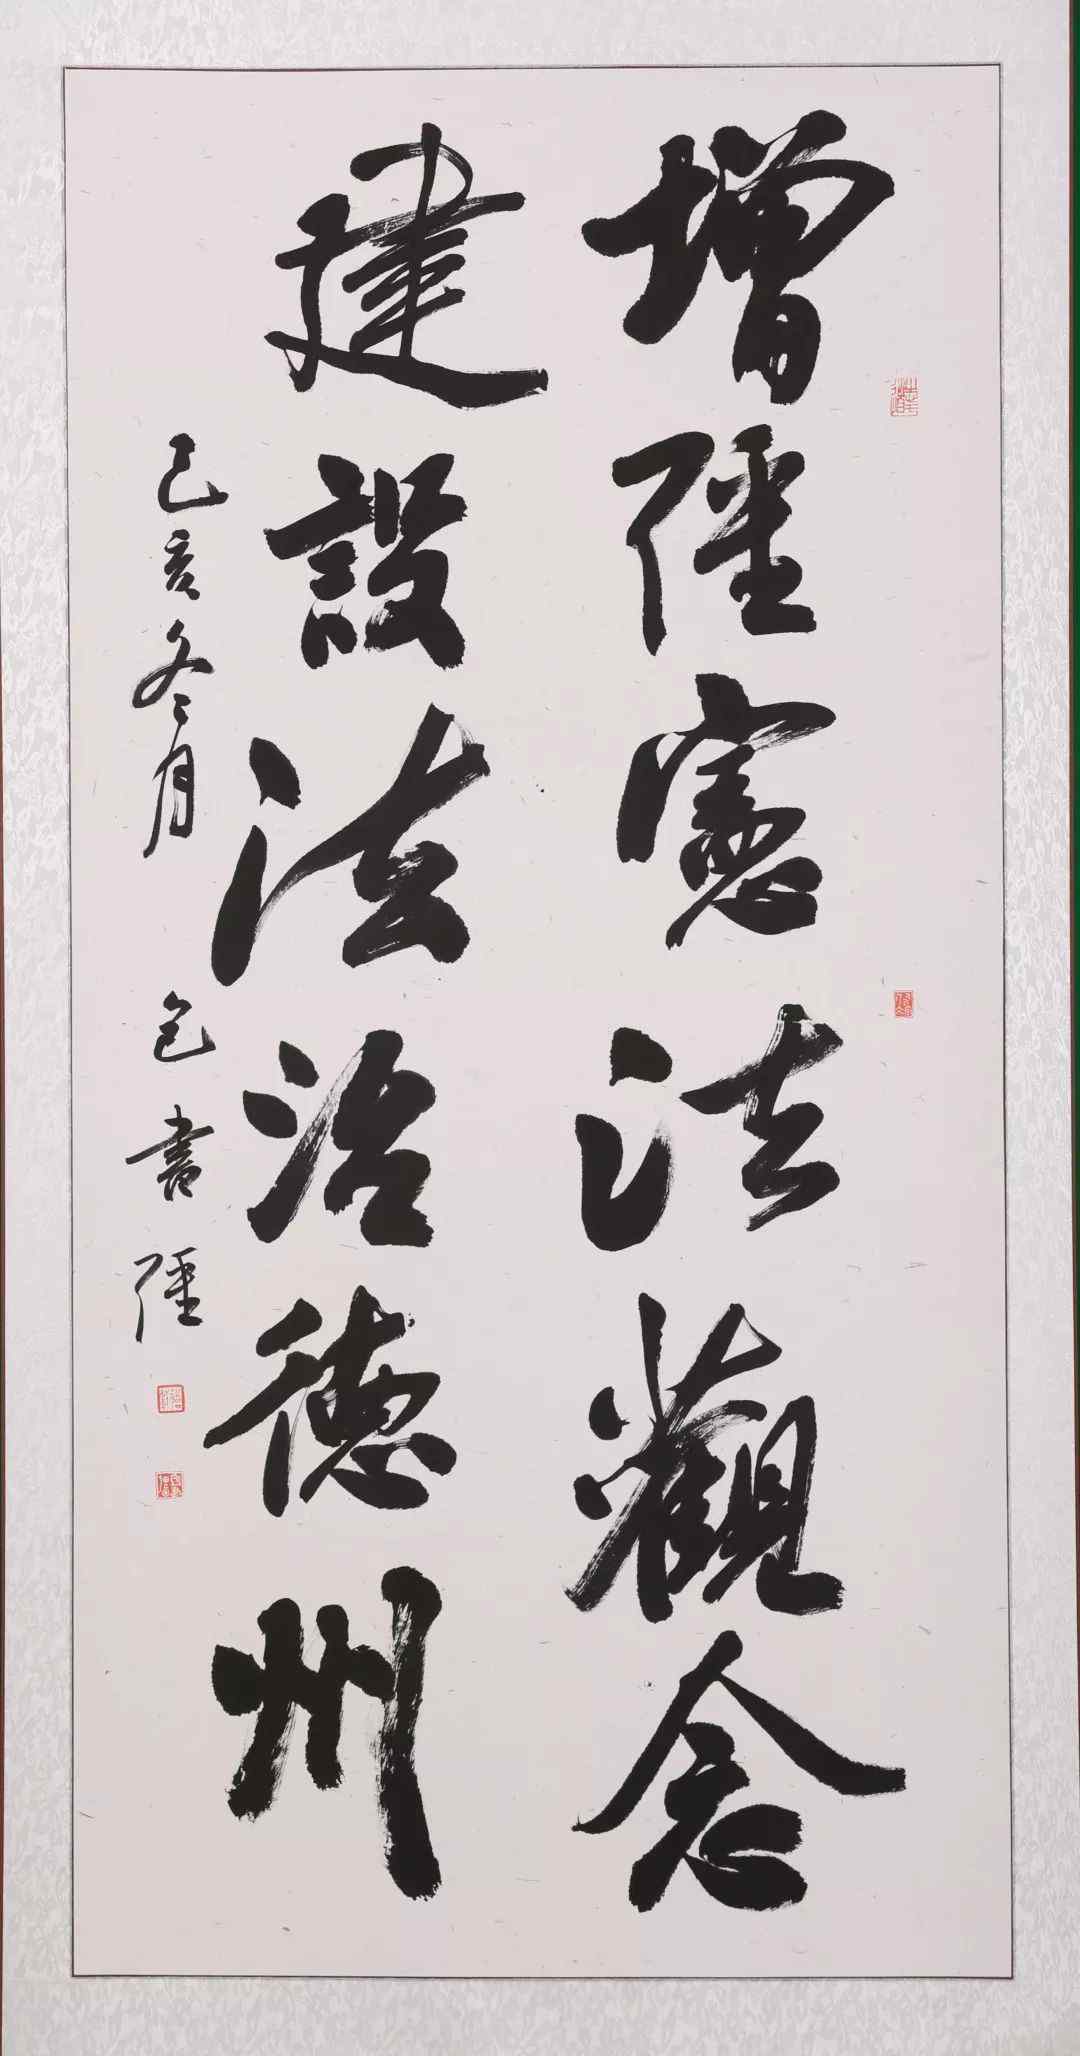 增彊憲法觀念
建設法治德州
己亥冬月 包書彊